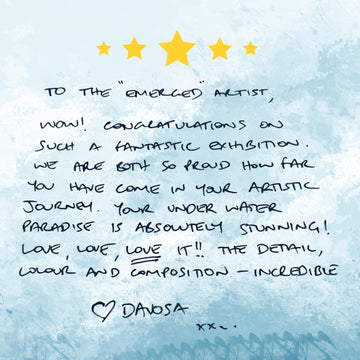 TO THE "EMERGED" ARTIST,
WOW! CONGRATULATIONS ON
SUCH A FANTASTIC EXHIBITION.
WE ARE BOTH SO PROUD HOW FAR
YOU HAVE COME IN YOUR ARTISTIC
JOURNEY. YOUR UNDER WATER
PARADISE IS ABSOLUTELY STUNNING!
LOVE, LOVE, LOVE IT!! THE DETAIL,
COLOUR AND COMPOSITION – INCREDIBLE
♡ DAVOSA
xx..